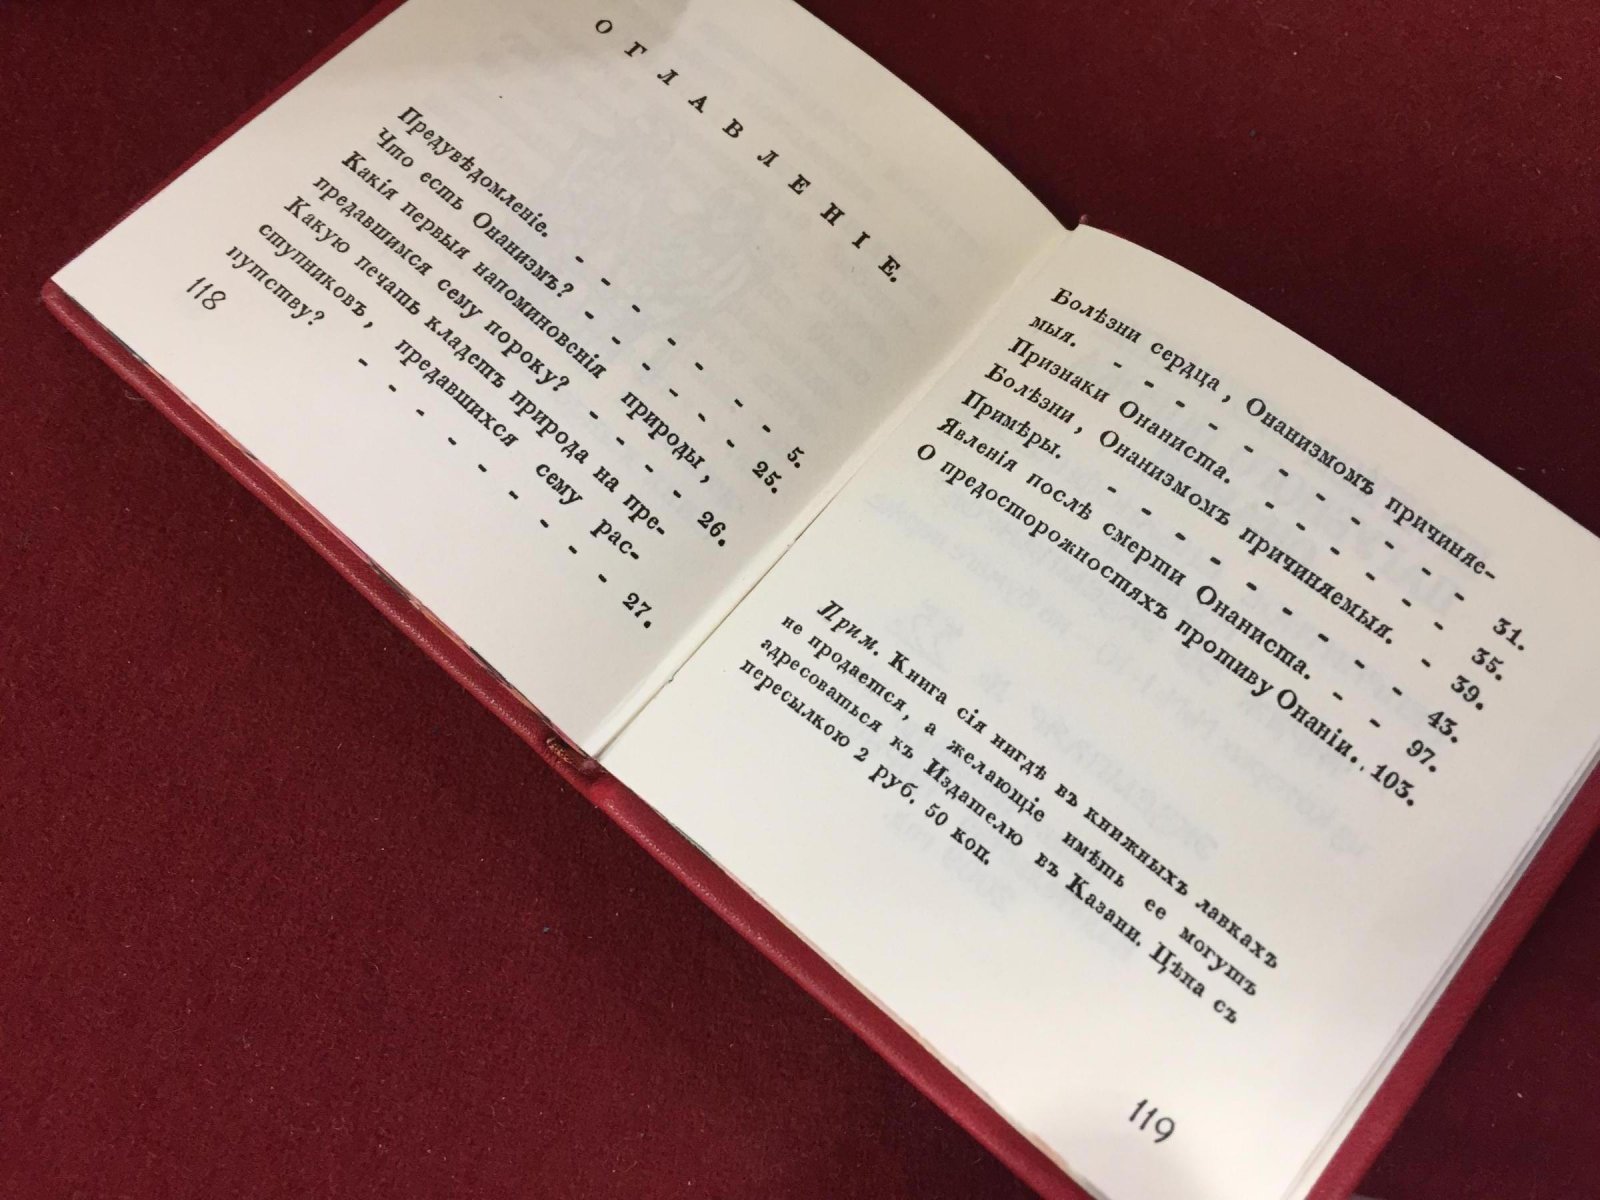 ОГЛАВЛЕНІЕ.
Предувѣдомленіе. - - - - - - - 5.
Что есть Онанизмъ? - - - - - - 25.
Какія первыя напоминовснія природы,
предавшимся сему пороку? - - - - 26.
Какую печать кладетъ природа на пре-
ступниковъ, предавшихся сему рас-
путству? - - - - - - - - - 27.
118
Болѣзни сердца, Онанизмомъ причиняе-
мыя. - - - - - - - - - - 31.
Признаки Онаниста. - - - - - - 35.
Болѣзни, Онанизмомъ причиняемыя. - 39.
Примѣры. - - - - - - - - - 43.
Явленія послѣ смерти Онаниста. - - 97.
О предосторожностяхъ противу Онаніи.. 103.
Прим. Книга сія нигдѣ въ книжныхъ лавкахъ
не продается, а желающіе имѣть ее могутъ
адресоваться къ Издателю въ Казани. Цѣна съ
пересылкою 2 руб. 50 коп.
119